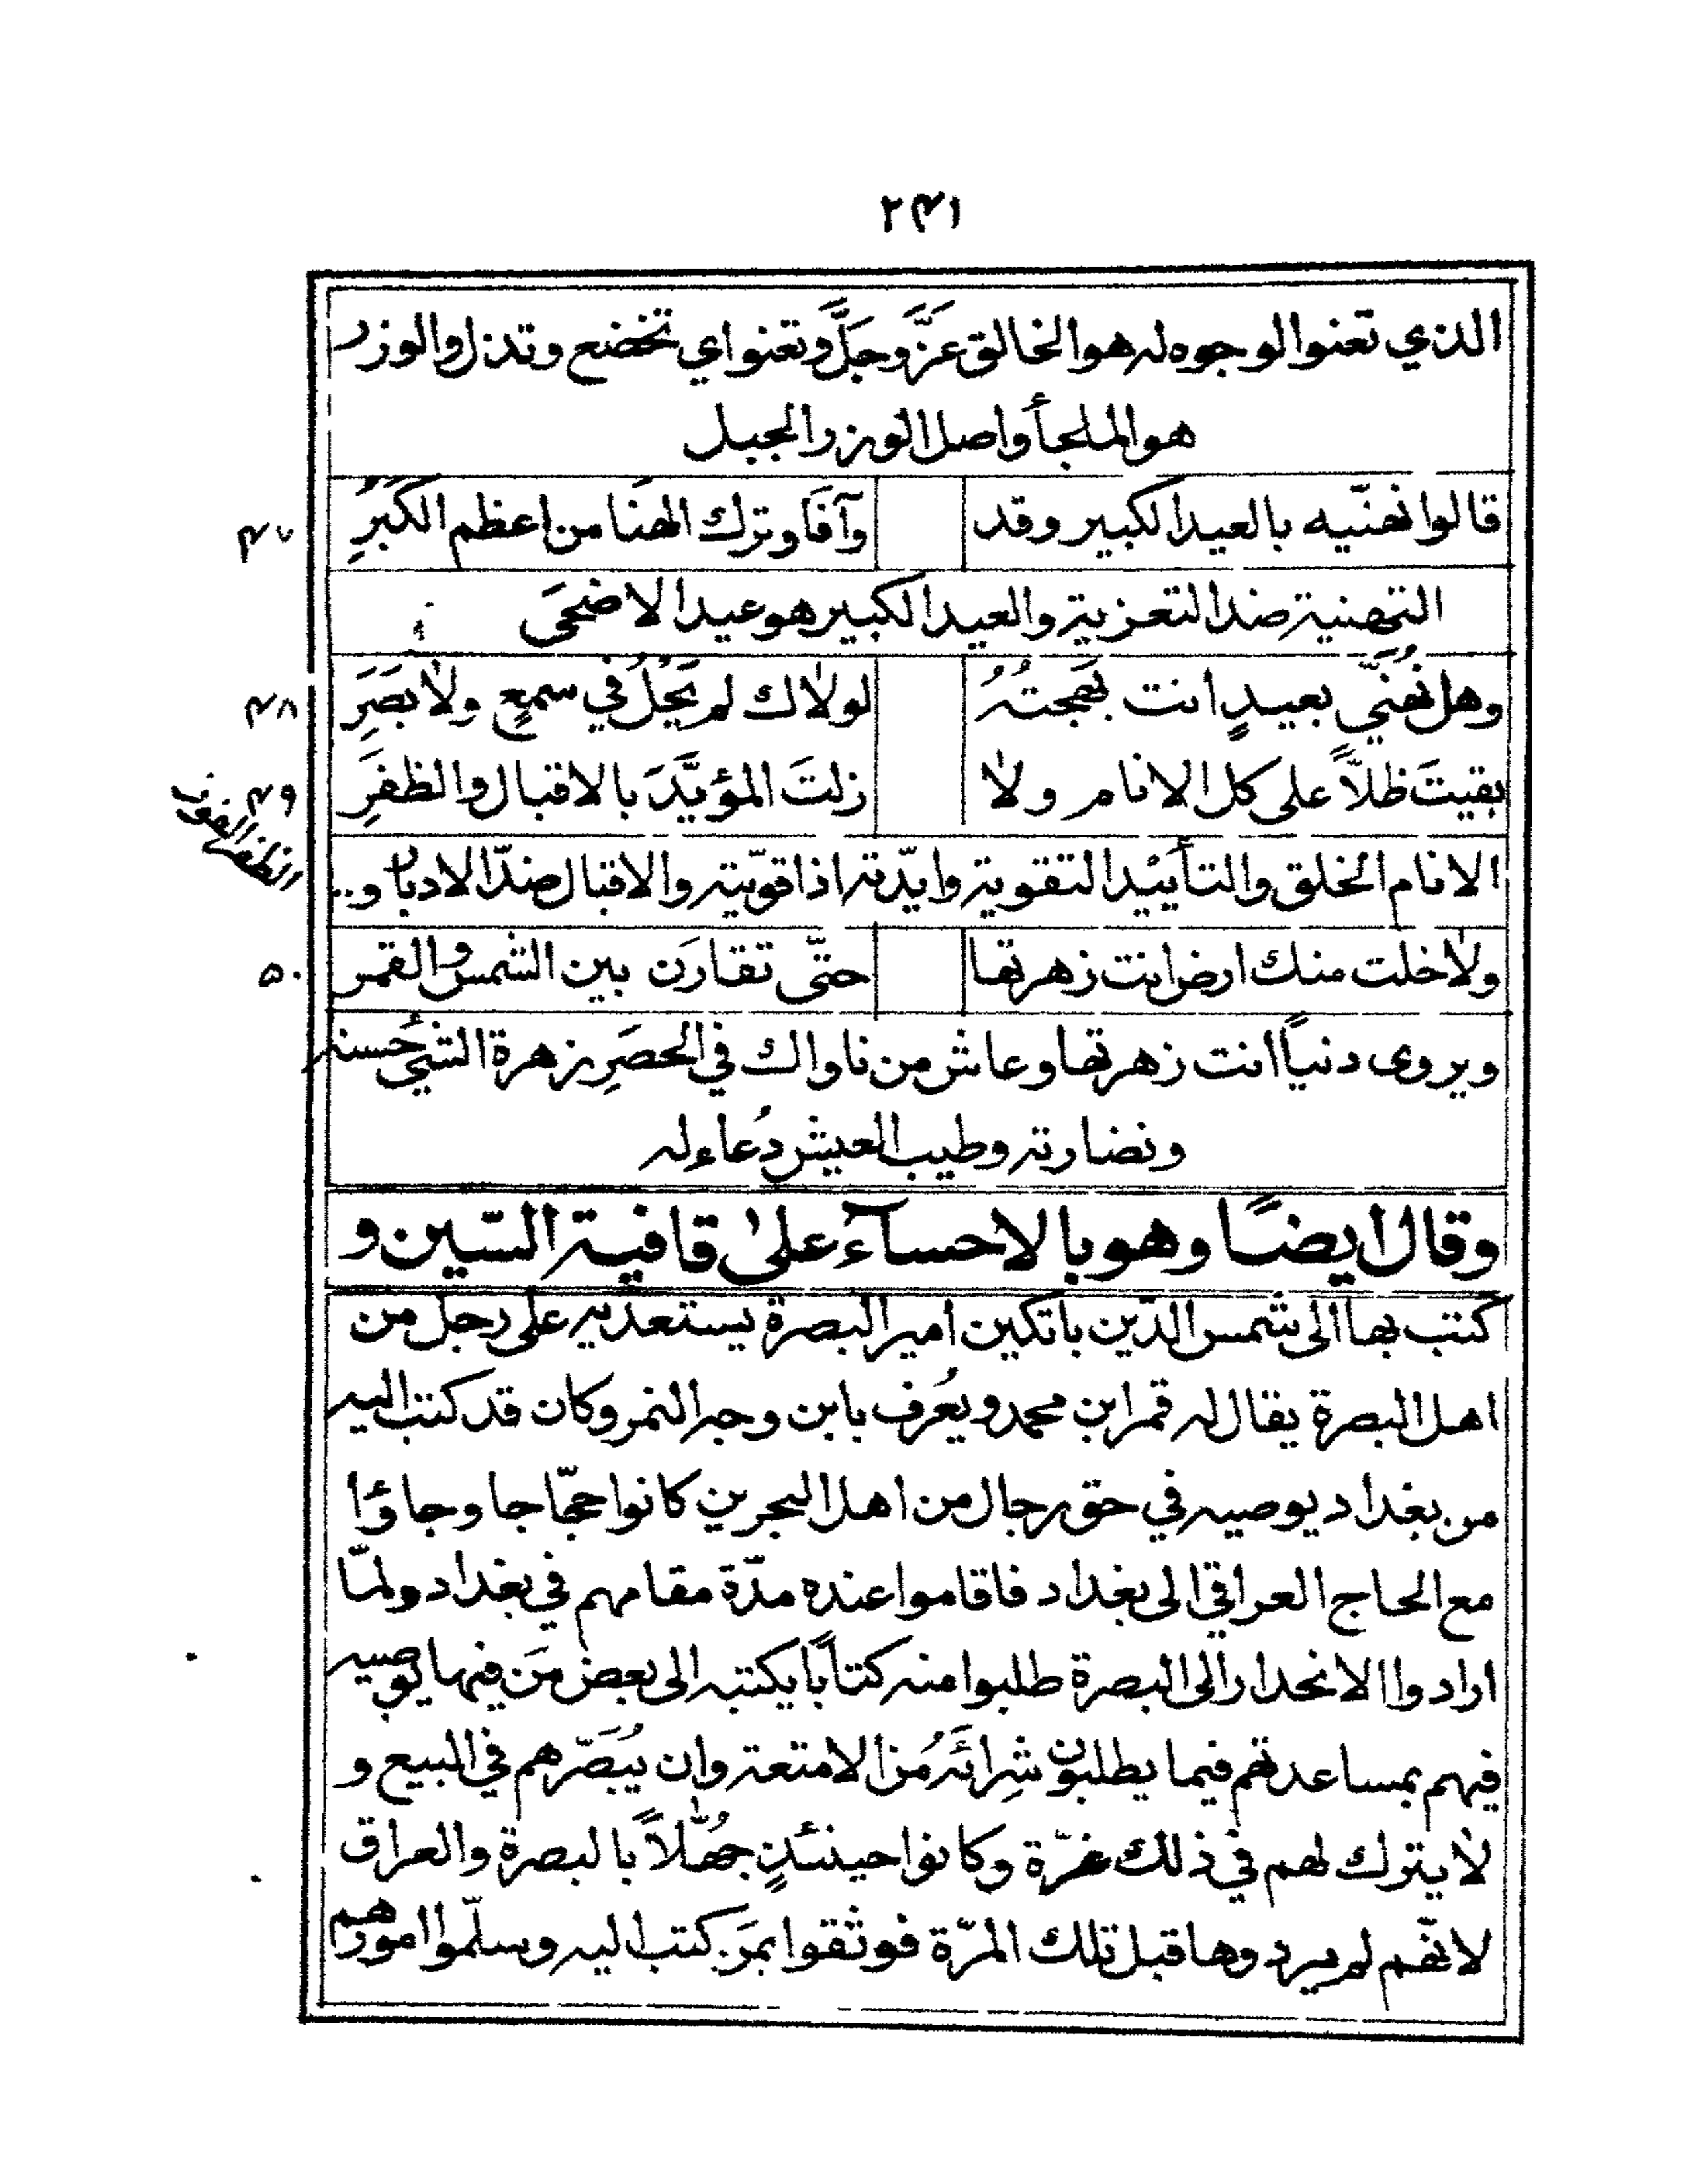 ٢٤١
الذي تعنوا الوجوه له هو الخالق عزّ وجلّ وتعنوا اي تخضع وتذل والوزر
هو الملجأ واصل الوزر الجبل
قالوا نهنّيه بالعيد الكبير وقد وآفا وترك الهنا من اعظم الكبرِ ٤٧
التهنية ضد التعزية والعيد الكبير هو عيد الاضحى
وهل نُهنّي بعيدٍ انت بهجتهُ لولاك لم يحْلُ في سمعٍ ولا بصَرِ ٤٨
بقيتَ ظلّاً على كل الانام ولا زلتَ المؤيَّدَ بالاقبال والظفَرِ ٤٩
الانام الخلق والتأييد التقوية وايّدته اذا قوّيته والاقبال ضدّ الادبار و..
الظفر الفوز
ولا خلت منك ارض انت زهرتها حتّى تقارَن بين الشمس والقمر ٥٠
ويروى دنياً انت زهرتها وعاش من ناواك في الحصَرِ زهرة الشيّ حُسنه
ونضارته وطيب العيش دُعاء له
وقال ايضًا وهو بالاحسآء على قافية السّين و
كتب بها الى شمس الدّين باتكين امير البصرة يستعديه على رجل من
اهل البصرة يقال له قمر ابن محمد ويُعرف بابن وجه النمر وكان قد كتب اليه
من بغداد يوصيه في حق رجال من اهل البحرين كانوا حجّاجا وجاؤا
مع الحاج العراقي الى بغداد فاقاموا عنده مدّة مقامهم في بغداد ولمّا
ارادوا الانحدار الى البصرة طلبوا منه كتاباً يكتبه الى بعض مَن فيها يوصيه
فيهم بمساعدتهم فيما يطلبون شِرائَهُ من الامتعة وان يُبَصّرهم في المبيع و
لا يترك لهم في ذلك غرّة وكانوا حينئذٍ جهّالاً بالبصرة والعراق
لانّهم لم يردوها قبل تلك المرّة فوثقوا بمَن كتب اليه وسلّموا امورهم